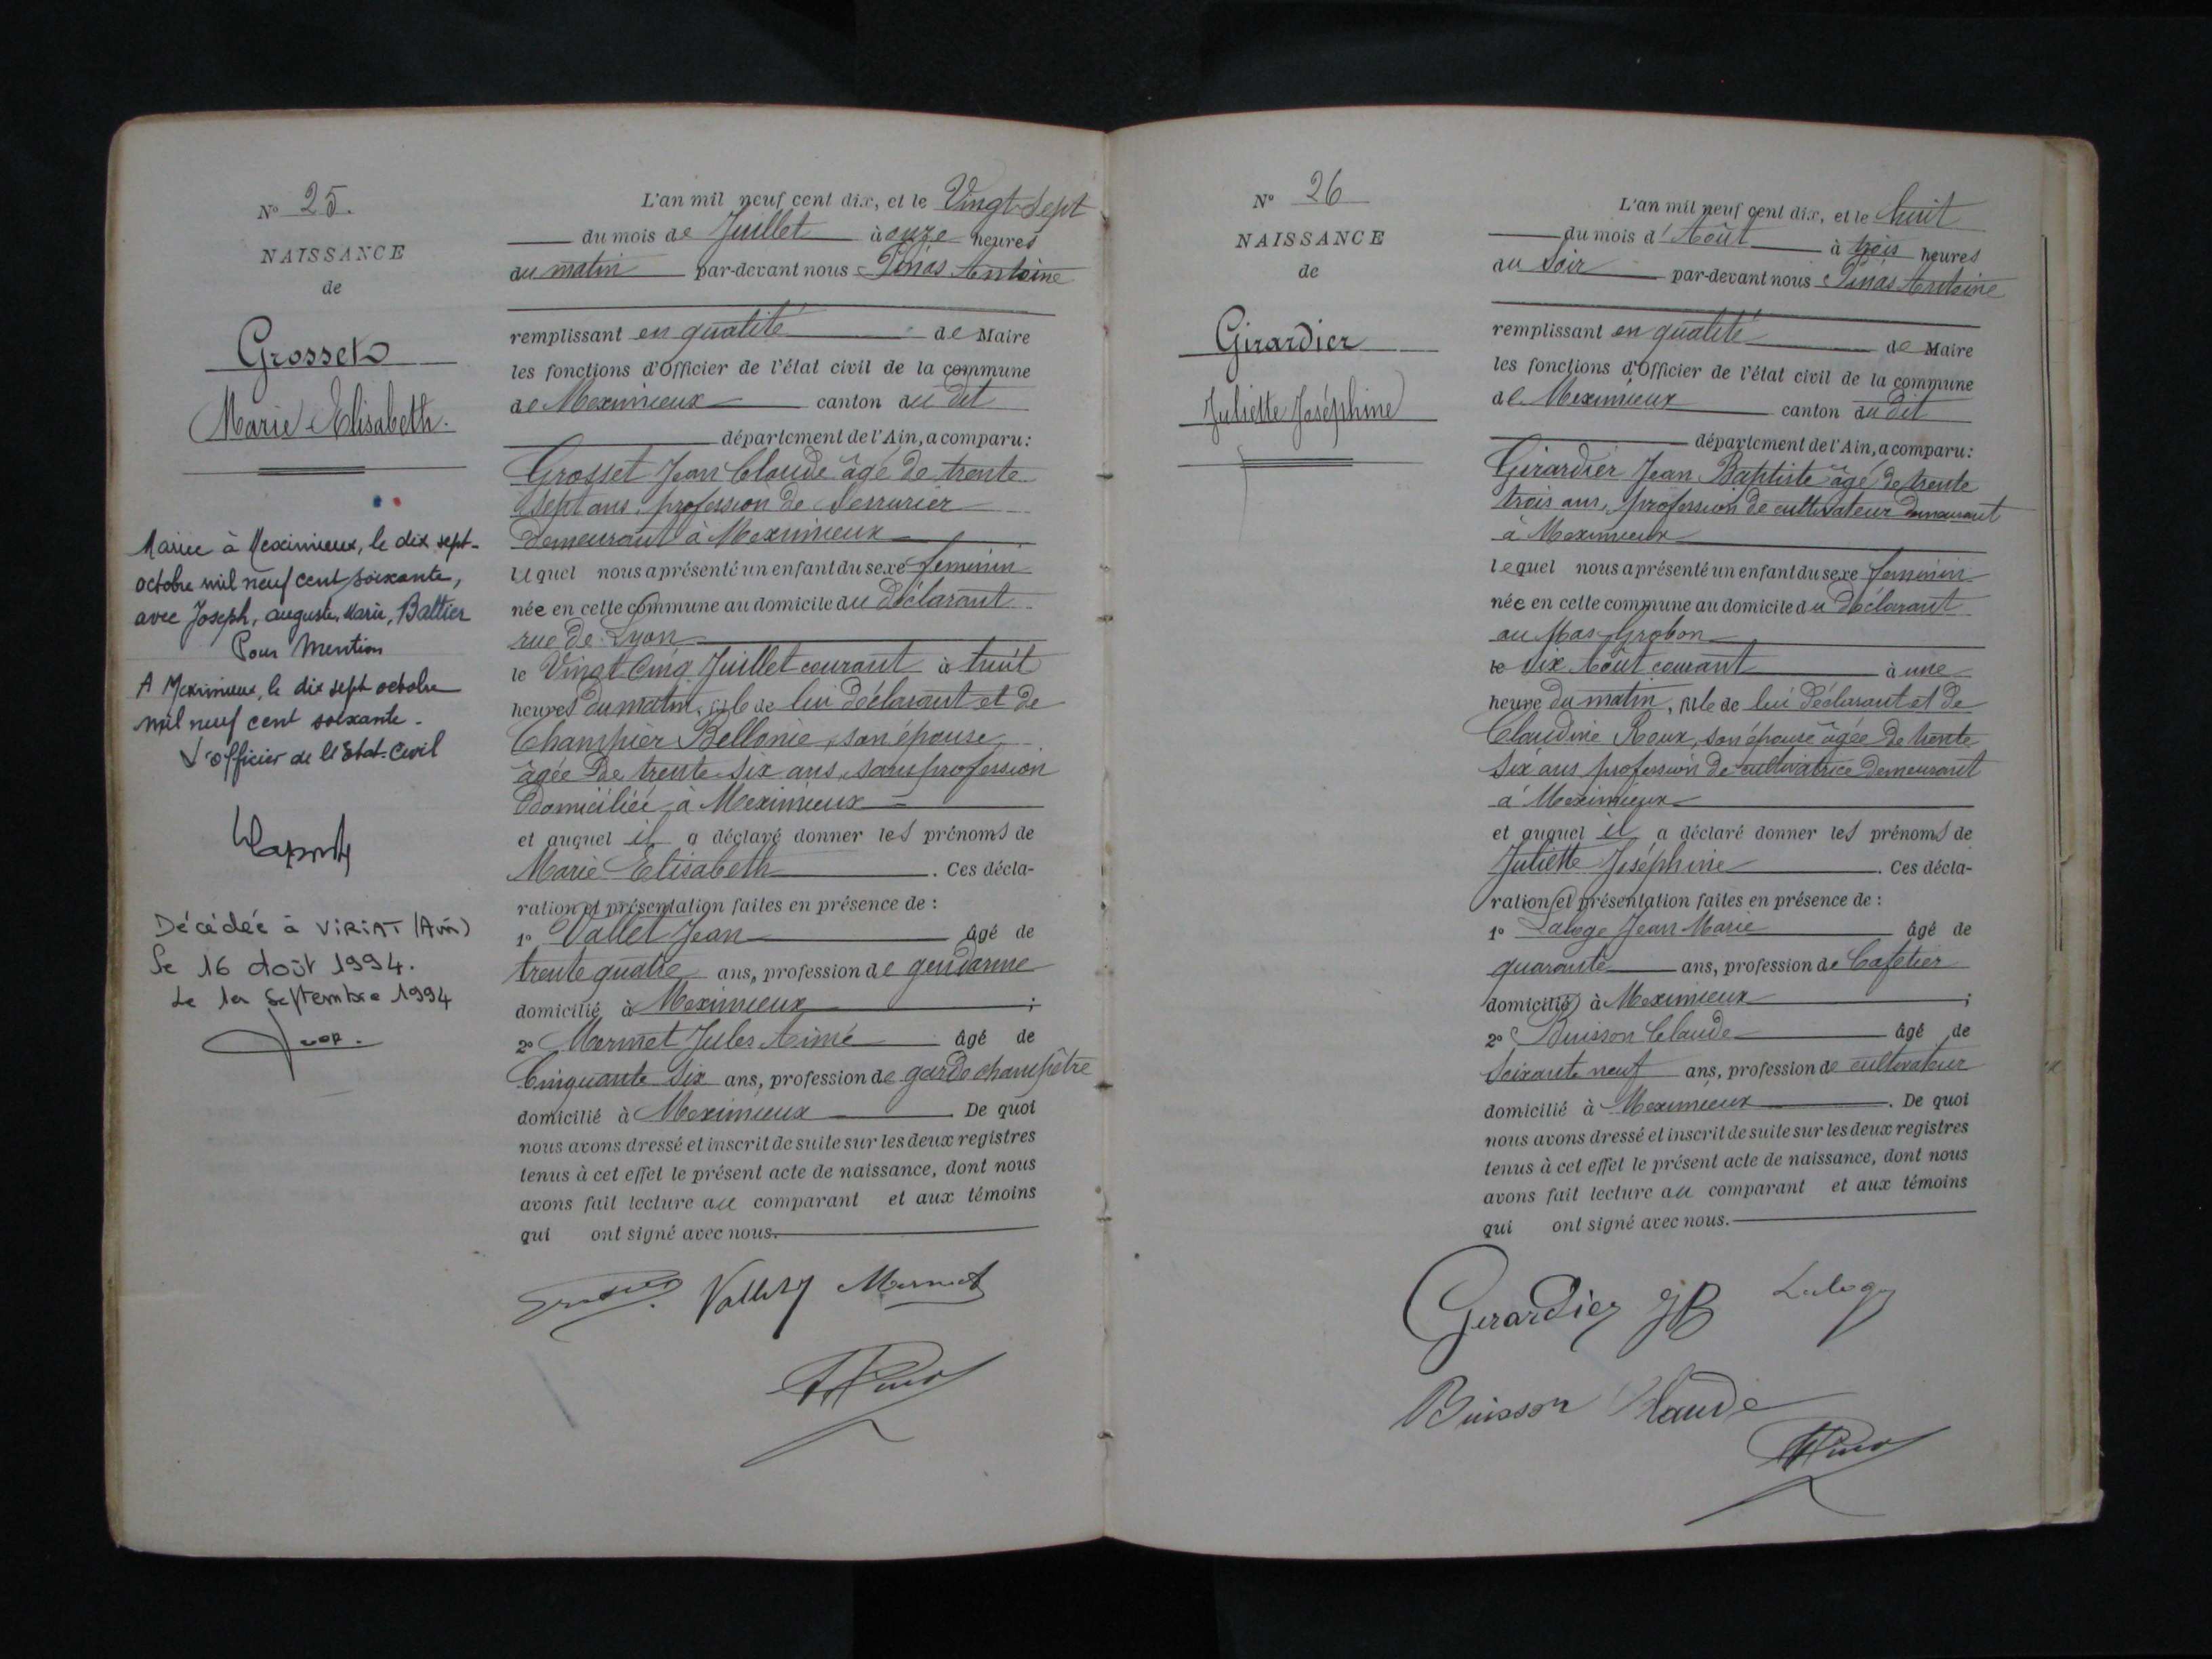 N° 25.
NAISSANCE
de
Grosset
Marie Elisabeth.
Mariée à Meximieux, le dix sept
octobre mil neuf cent soixante,
avec Joseph, auguste, Marie, Battier
Pour Mention
A Meximieux, le dix sept octobre
mil neuf cent soixante.
L'officier de l'Etat-Civil
Décédée à VIRIAT (Ain)
Le 16 Août 1994.
Le 1er Septembre 1994
L'an mil neuf cent dix, et le Vingt-Sept
du mois de Juillet à onze heures
du matin par-devant nous Pinas Antoine
remplissant en qualité de Maire
les fonctions d'Officier de l'état civil de la commune
de Meximieux canton du dit
département de l'Ain, a comparu :
Grosset Jean Claude âgé de trente
sept ans, profession de Serrurier
demeurant à Meximieux
lequel nous a présenté un enfant du sexe féminin
née en cette commune au domicile du déclarant
rue de Lyon
le Vingt Cinq Juillet courant à huit
heures du matin, fille de lui déclarant et de
Champier Bellonie, son épouse,
âgée de trente six ans, sans profession
domiciliée à Meximieux
et auquel il a déclaré donner les prénoms de
Marie Elisabeth. Ces décla-
ration et présentation faites en présence de :
1° Vallet Jean âgé de
trente quatre ans, profession de gendarme
domicilié à Meximieux ;
2° Mermet Jules Aimé âgé de
Cinquante Six ans, profession de garde champêtre
domicilié à Meximieux. De quoi
nous avons dressé et inscrit de suite sur les deux registres
tenus à cet effet le présent acte de naissance, dont nous
avons fait lecture au comparant et aux témoins
qui ont signé avec nous.
Vallet Mermet
N° 26
NAISSANCE
de
Girardier
Juliette Joséphine
L'an mil neuf cent dix, et le huit
du mois d'Août à trois heures
du Soir par-devant nous Pinas Antoine
remplissant en qualité de Maire
les fonctions d'Officier de l'état civil de la commune
de Meximieux canton du dit
département de l'Ain, a comparu :
Girardier Jean Baptiste âgé de trente
trois ans, profession de cultivateur demeurant
à Meximieux
lequel nous a présenté un enfant du sexe féminin
née en cette commune au domicile du Déclarant
au Mas Grobon
le six Août courant à une
heure du matin, fille de lui déclarant et de
Claudine Roux, son épouse âgée de trente
six ans profession de cultivatrice demeurant
à Meximieux
et auquel il a déclaré donner les prénoms de
Juliette Joséphine. Ces décla-
ration et présentation faites en présence de :
1° Laloge Jean Marie âgé de
quarante ans, profession de Cafetier
domicilié à Meximieux ;
2° Buisson Claude âgé de
Soixante neuf ans, profession de cultivateur
domicilié à Meximieux. De quoi
nous avons dressé et inscrit de suite sur les deux registres
tenus à cet effet le présent acte de naissance, dont nous
avons fait lecture au comparant et aux témoins
qui ont signé avec nous.
Girardier JB Laloge
Buisson Claude